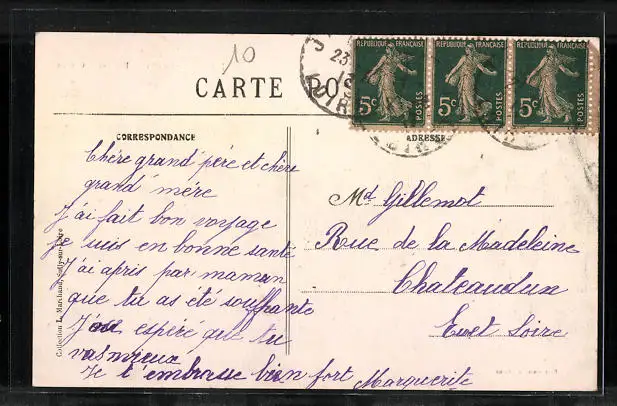 10
CARTE PO
REPUBLIQUE FRANÇAISE
5c
POSTES
REPUBLIQUE FRANÇAISE
5c
POSTES
REPUBLIQUE FRANÇAISE
5c
POSTES
23
LOIR
CORRESPONDANCE
ADRESSE
Chère grand'père et chère
grand'mère
J'ai fait bon voyage
Je suis en bonne santé
J'ai apris par maman
que tu as été souffrante
J' espère que tu
vas mieux
Je t'embrasse bien fort Marguerite
Md Gillemot
Rue de la Madeleine
Chateaudun
Euet Loire
Collection L. Marchand, Sully-sur-Loire